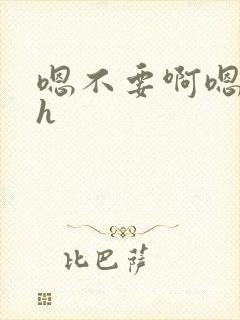 嗯不要啊嗯
h
比巴萨